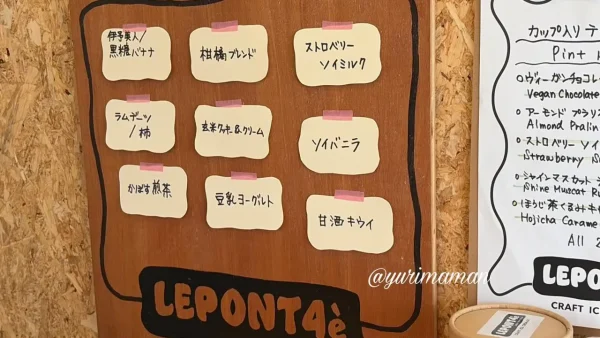 伊予美人/
黒糖バナナ
柑橘ブレンド
ストロベリー
ソイミルク
ラムデーツ
/柿
玄米クッキー&クリーム
ソイバニラ
かぼす煎茶
豆乳ヨーグルト
甘酒キウイ
LEPONT4è
@yurimaman
カップ入り テ
Pint
ヴィーガンチョコレ
Vegan Chocolate
アーモンド プラリ
Almond Pralin
ストロベリー ソイ
Strawberry S
シャインマスカット
Shine Muscat
ほうじ茶くるみキ
Hojicha Carame
All
LEPO
CRAFT IC
LEPONT4è